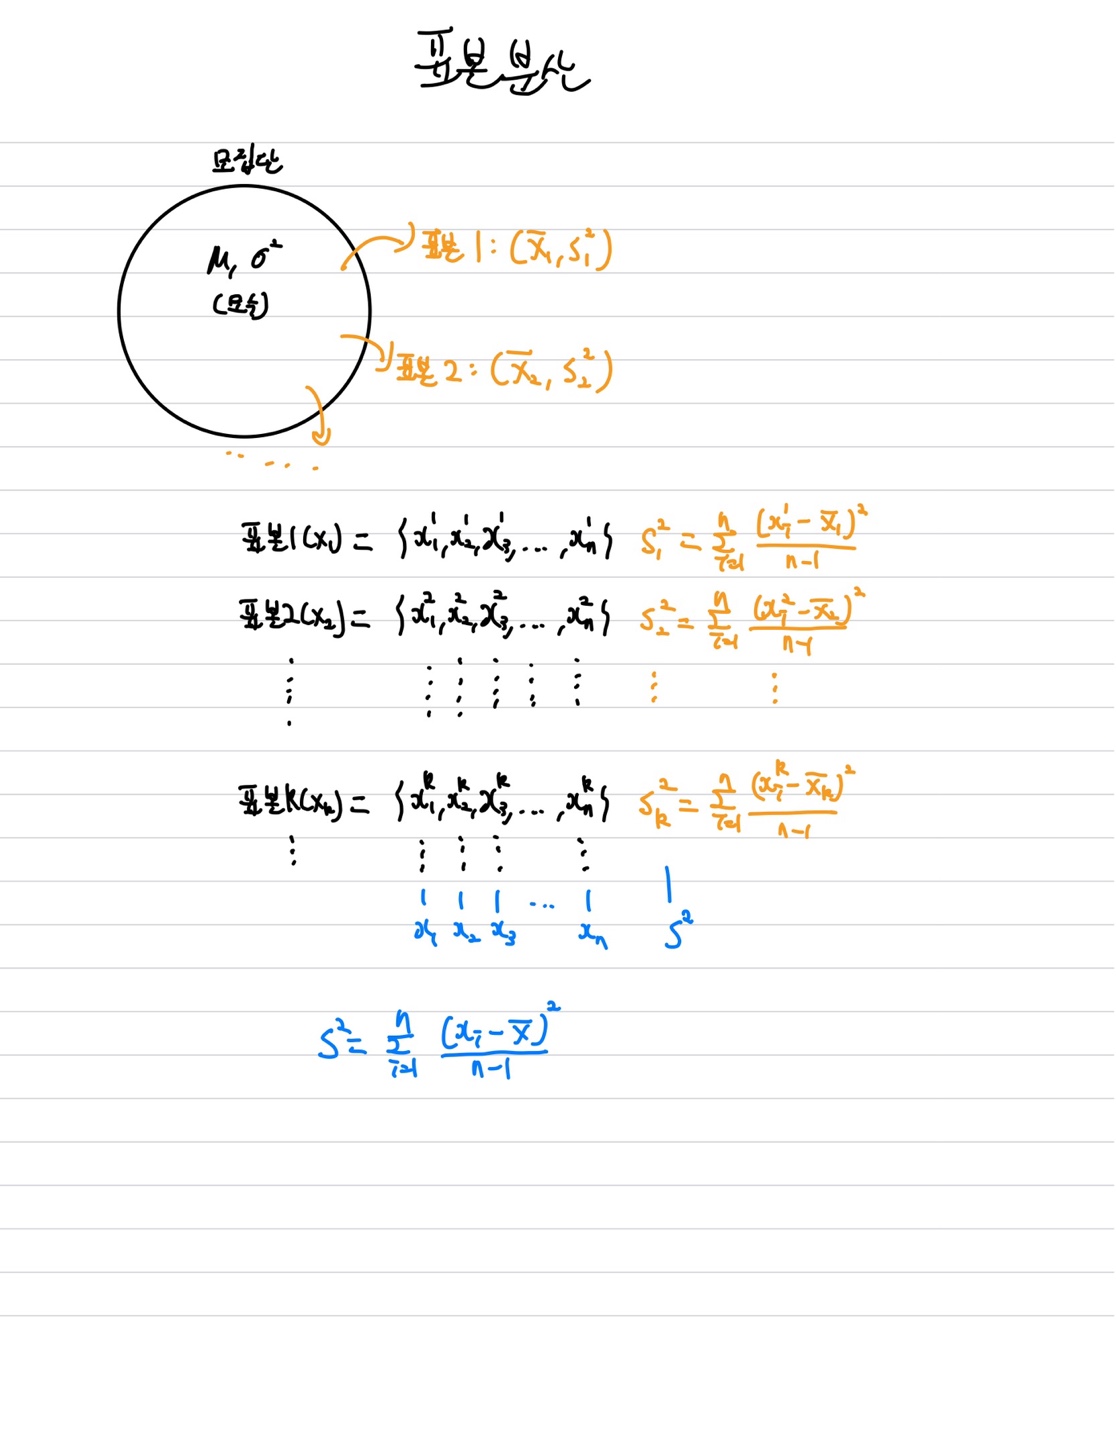 표본분산
모집단
μ, σ²
(모수)
표본 1 : (x̄₁, s₁²)
표본 2 : (x̄₂, s₂²)
.. . . .
표본1(x₁) = {x₁¹, x₂¹, x₃¹, ... , xₙ¹} s₁² = Σᵢ₌₁ⁿ (xᵢ¹ - x̄₁)² / n-1
표본2(x₂) = {x₁², x₂², x₃², ... , xₙ²} s₂² = Σᵢ₌₁ⁿ (xᵢ² - x̄₂)² / n-1
⋮ ⋮ ⋮ ⋮ ⋮ ⋮ ⋮ ⋮
표본k(xₖ) = {x₁ᵏ, x₂ᵏ, x₃ᵏ, ... , xₙᵏ} sₖ² = Σᵢ₌₁ⁿ (xᵢᵏ - x̄ₖ)² / n-1
⋮ ⋮ ⋮ ⋮ ⋮
| | | ... | |
x₁ x₂ x₃ xₙ s²
s² = Σᵢ₌₁ⁿ (xᵢ - x̄)² / n-1